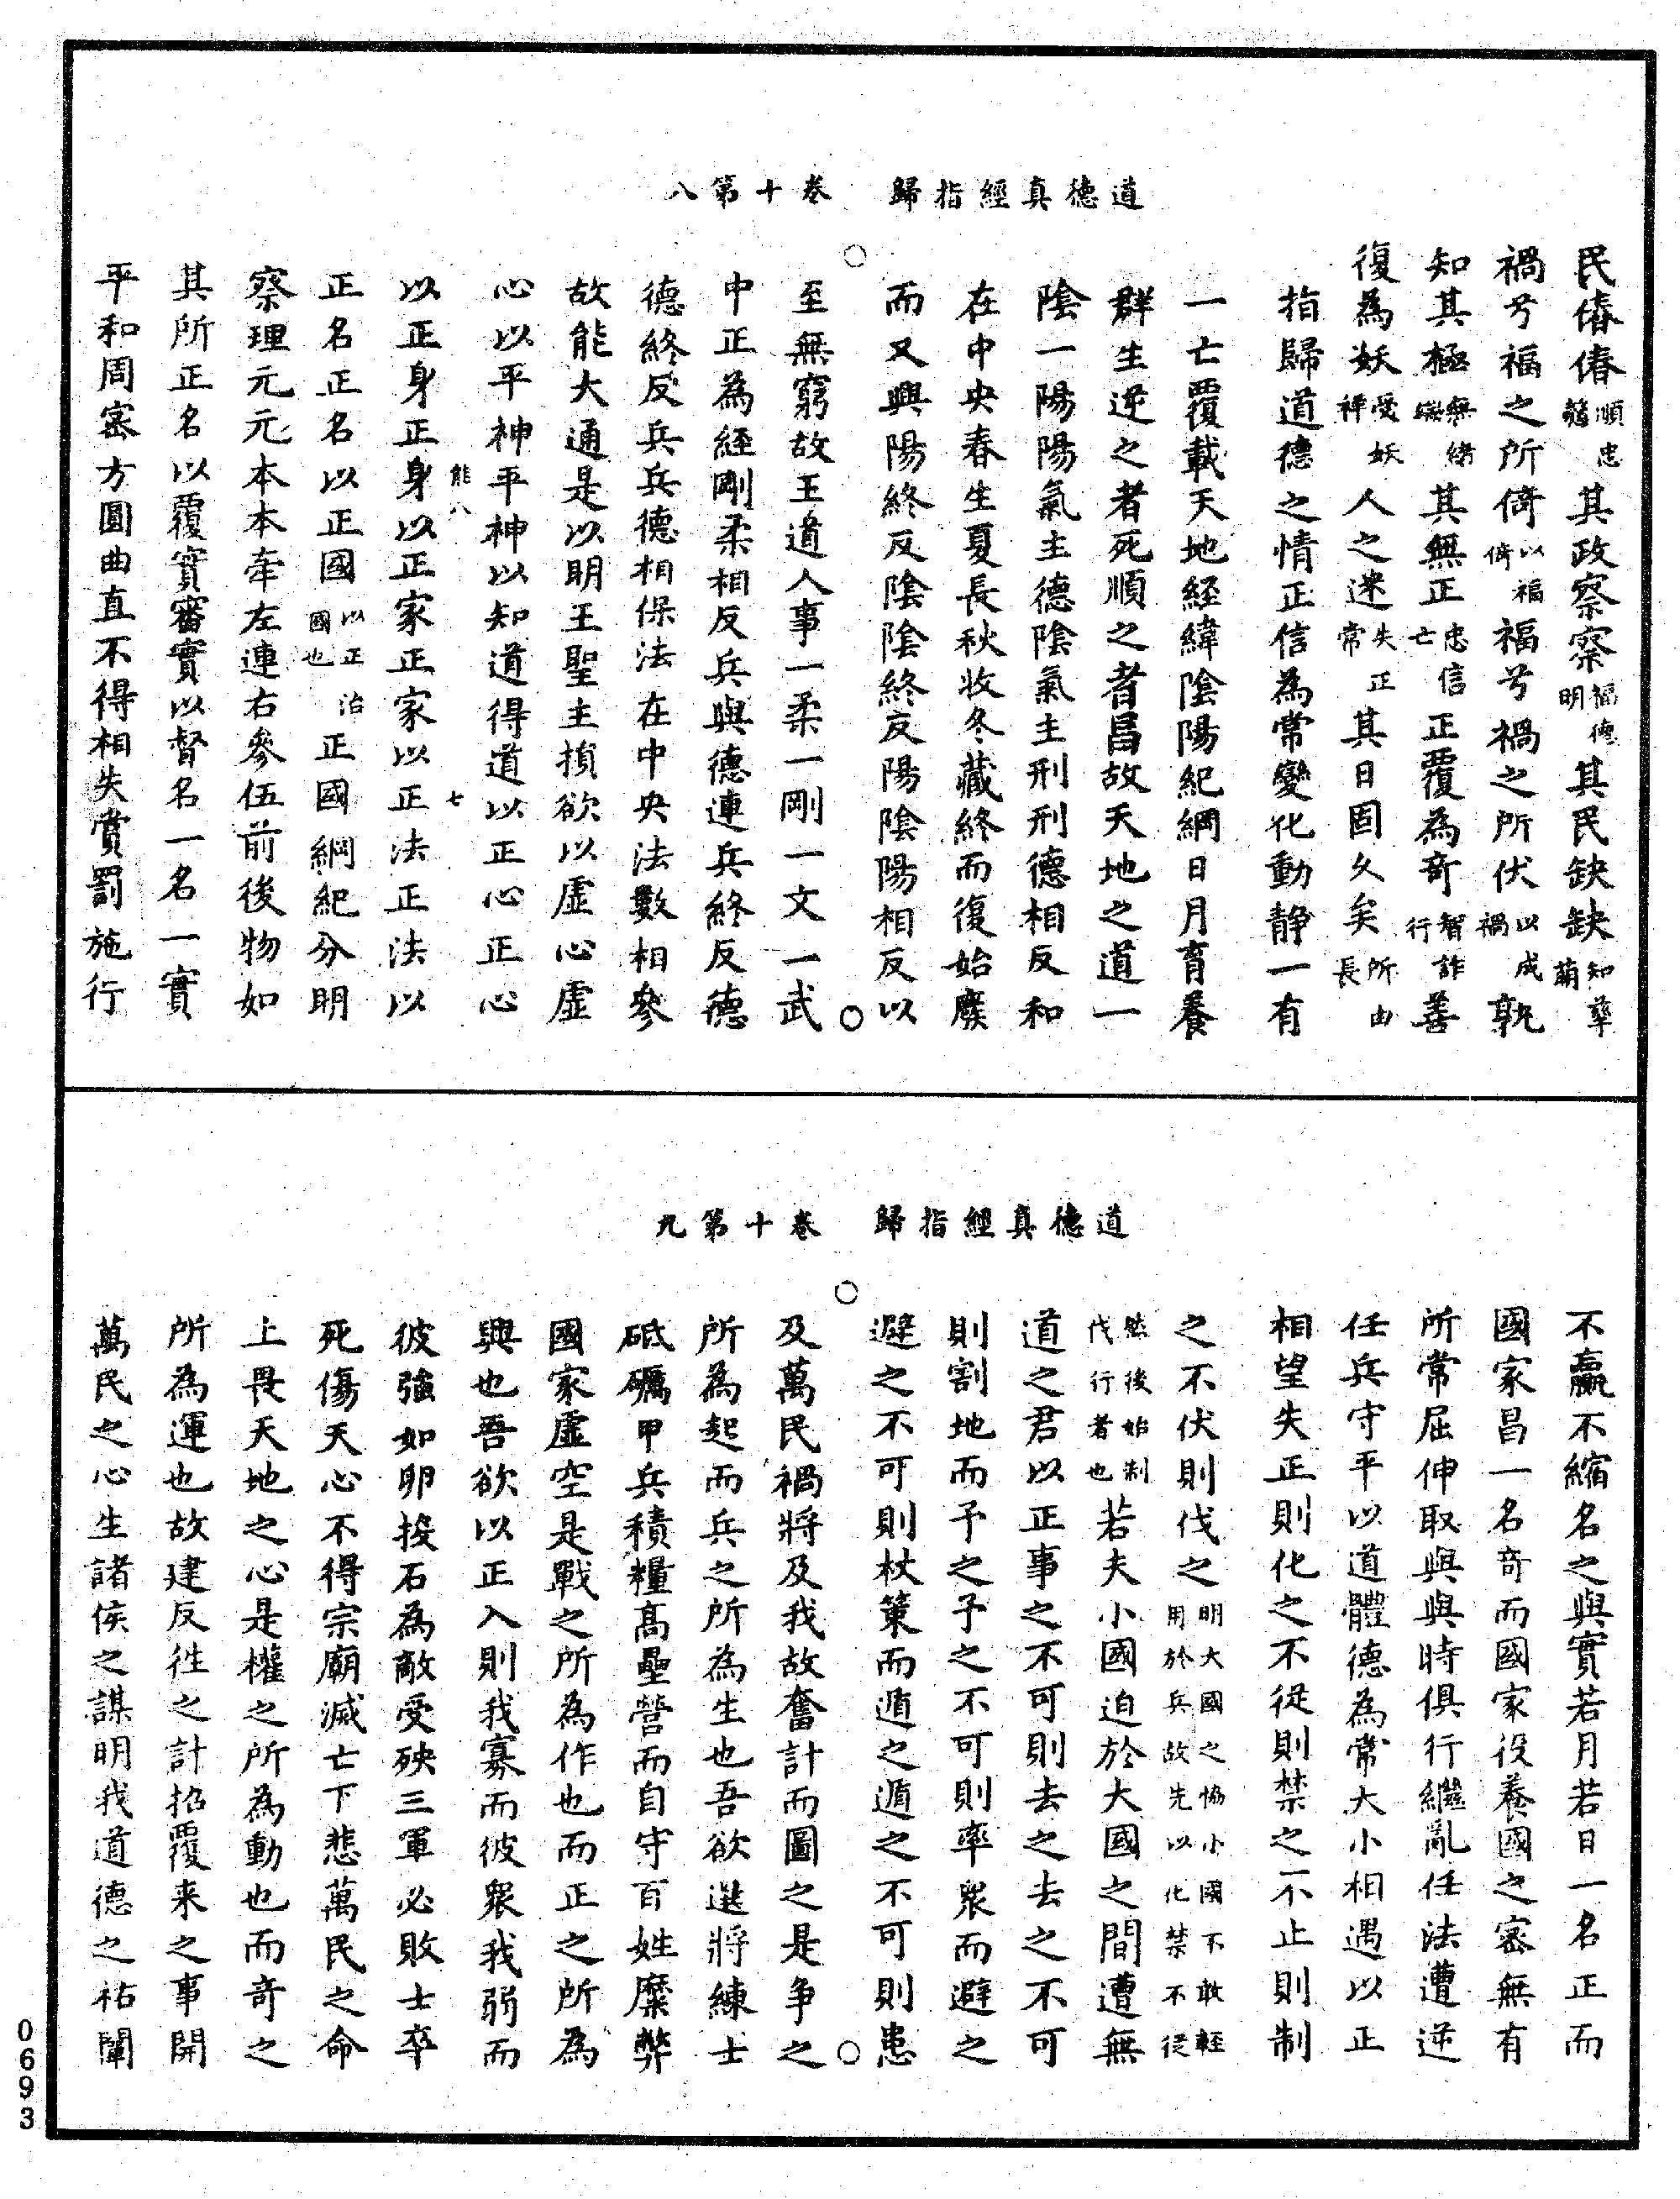 道德真經指歸　卷十第八
民偆偆順忠慤其政察察福德明其民缺缺知孽萌
禍兮福之所倚以福倚福兮禍之所伏以成禍孰
知其極無緒其無正忠信亡正覆為奇智詐行善
復為妖受妖祥人之迷失正常其日固久矣所由長
指歸道德之情正信為常變化動靜一有
一亡覆載天地經緯陰陽紀綱日月育養
群生逆之者死順之者昌故天地之道一
陰一陽陽氣主德陰氣主刑刑德相反和
在中央春生夏長秋收冬藏終而復始廢
而又興陽終反陰陰終反陽陰陽相反以
至無窮故王道人事一柔一剛一文一武
中正為經剛柔相反兵與德連兵終反德
德終反兵兵德相保法在中央法數相參
故能大通是以明王聖主損欲以虛心虛
心以平神平神以知道得道以正心正心
能八　七
以正身正身以正家正家以正法正法以
正名正名以正國以正治國也正國綱紀分明
察理元元本本牽左連右參伍前後物如
其所正名以覆實審實以督名一名一實
平和周密方圓曲直不得相失賞罰施行
道德真經指歸　卷十第九
不贏不縮名之與實若月若日一名正而
國家昌一名奇而國家役養國之密無有
所常屈伸取與與時俱行繼亂任法遭逆
任兵守平以道體德為常大小相遇以正
相望失正則化之不從則禁之不止則制
之不伏則伐之明大國之恊小國不敢輕用於兵故先以化禁不從
然後始制伐行者也若夫小國迫於大國之間遭無
道之君以正事之不可則去之去之不可
則割地而予之予之不可則率眾而避之
避之不可則杖策而遁之遁之不可則患
及萬民禍將及我故奮計而圖之是爭之
所為起而兵之所為生也吾欲選將練士
砥礪甲兵積糧高壘營而自守百姓糜弊
國家虛空是戰之所為作也而正之所為
興也吾欲以正入則我寡而彼眾我弱而
彼強如卵投石為敵受殃三軍必敗士卒
死傷天心不得宗廟滅亡下悲萬民之命
上畏天地之心是權之所為動也而奇之
所為運也故建反徃之計招覆来之事開
萬民之心生諸侯之謀明我道德之祐闡
0693